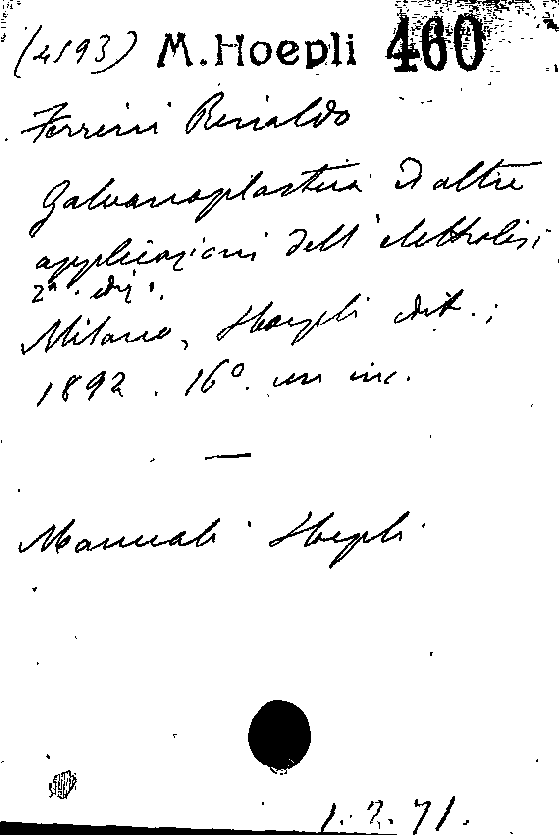 (4593) M. Hoepli 460
Ferrini Rinaldo
Galvanoplastica ed altre
applicazioni dell'elettrolisi
2ª. ediz.
Milano, Hoepli edit.;
1892. 16º. con inc.
—
Manuali Hoepli
1.2.71.